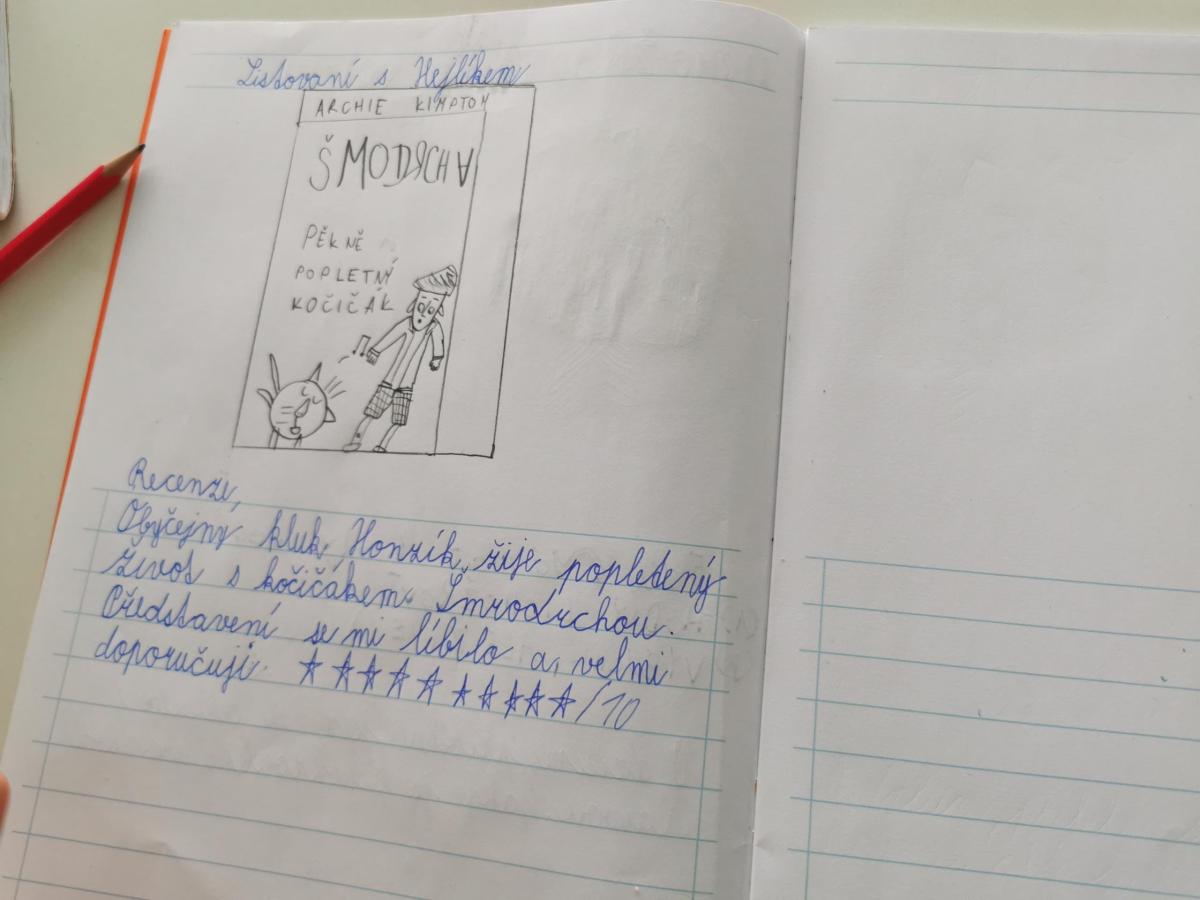 Listování s Hejlíkem
ARCHIE KIMPTON
ŠMODRCHA
PĚKNĚ
POPLETNÝ
KOČIČÁK
Recenze,
Obyčejný kluk, Honzík, žije popletený
život s kočičákem. Šmrodrchou.
Představení se mi líbilo a velmi
doporučuji. ★★★★★ ★★★★★/10